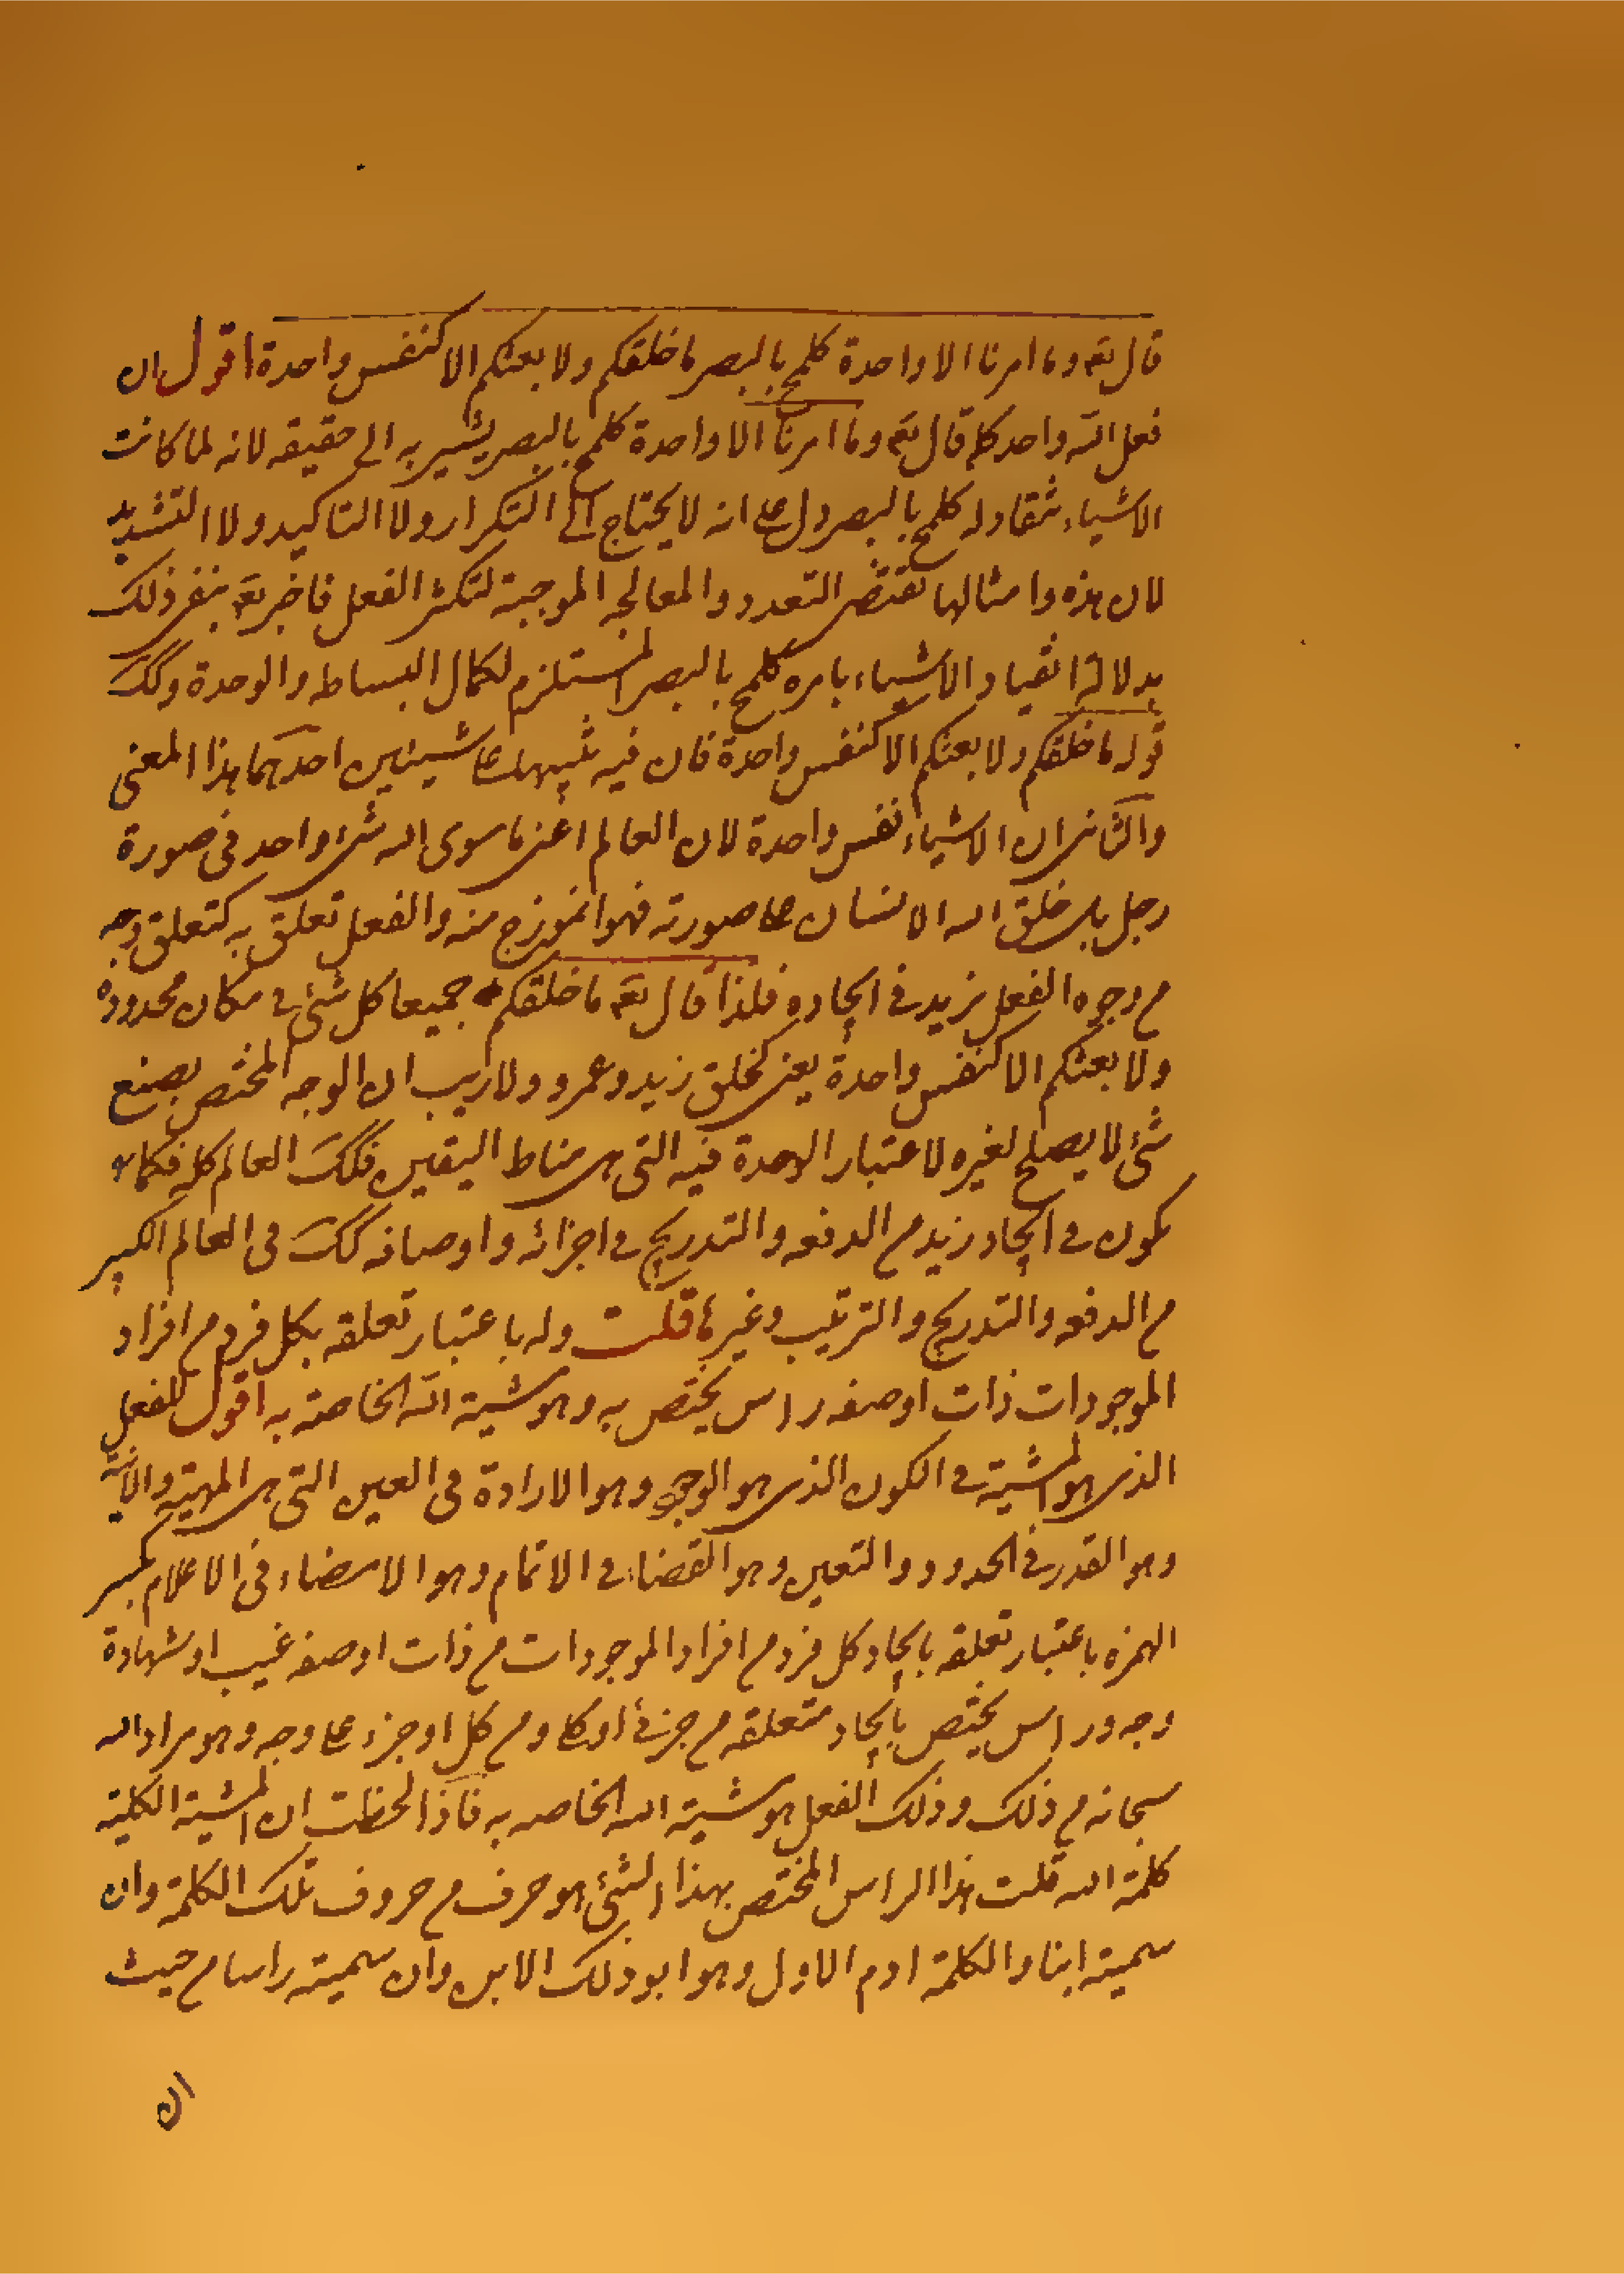 قال تعه وما امرنا الا واحدة كلمح بالبصر ما خلقكم ولا بعثكم الا كنفس واحدة اقول ان
فعل الله واحد كما قال تعه وما امرنا الا واحدة كلمح بالبصر يشير به الى حقيقه لانه لما كانت
الاشياء منقادا له كلمح بالبصر دل على انه لا يحتاج الى التكرار ولا التاكيد ولا التشديد
لان هذه وامثالها تقتضى التعدد والمعالجه الموجبة لتكثر الفعل فاخبر تعه بنفى ذلك
بدلالة انقياد الاشياء بامره كلمح بالبصر المستلزم لكمال البساطه والوحدة وكك
قوله ما خلقكم ولا بعثكم الا كنفس واحدة فان فيه تنبيها على شيئين احدهما هذا المعنى
والثانى ان الاشياء نفس واحدة لان العالم اعنى ما سوى الله شئ واحد فى صورة
رجل بل خلق الله الانسان على صورته فهو انموزج منه والفعل تعلق به كتعلق وجه
من وجوه الفعل بزيد فى ايجاده فلذا قال تعه ما خلقكم جميعا كل شئ فى مكان حدوده
ولا بعثكم الا كنفس واحدة يعنى كخلق زيد وعمرو ولا ريب ان الوجه المختص بصنع
شئ لا يصلح لغيره لاعتبار الوحدة فيه التى هى مناط اليقين فكك العالم كله فكما
يكون فى ايجاد زيد من الدفعه والتدريج فى اجزائه واوصافه كك فى العالم الكبير
من الدفعه والتدريج والترتيب وغيرها قلت وله باعتبار تعلقه بكل فرد من افراد
الموجودات ذات او صفه راس يختص به وهو مشية الله الخاصة به اقول للفعل
الذى هو المشية فى الكون الذى هو الوجود وهو الارادة فى العين التى هى المهية والانية
وهو القدر فى الحدود والتعين وهو القضاء فى الاتمام وهو الامضاء فى الاعلام بكسر
الهمزه باعتبار تعلقه بايجاد كل فرد من افراد الموجودات من ذات او صفه غيب او شهادة
وجه وراس يختص بايجاد متعلقه من جزئ او كل ومن كل او جزء على وجه وهو مراد الله
سبحانه من ذلك وذلك الفعل هو مشية الله الخاصه به فاذا لحظت ان المشية الكلية
كلمة الله قلت هذا الراس المختص بهذا الشئ هو حرف من حروف تلك الكلمة وان
سميته ابنا والكلمة ادم الاول وهو ابو ذلك الابن وان سميته راسا من حيث
ان